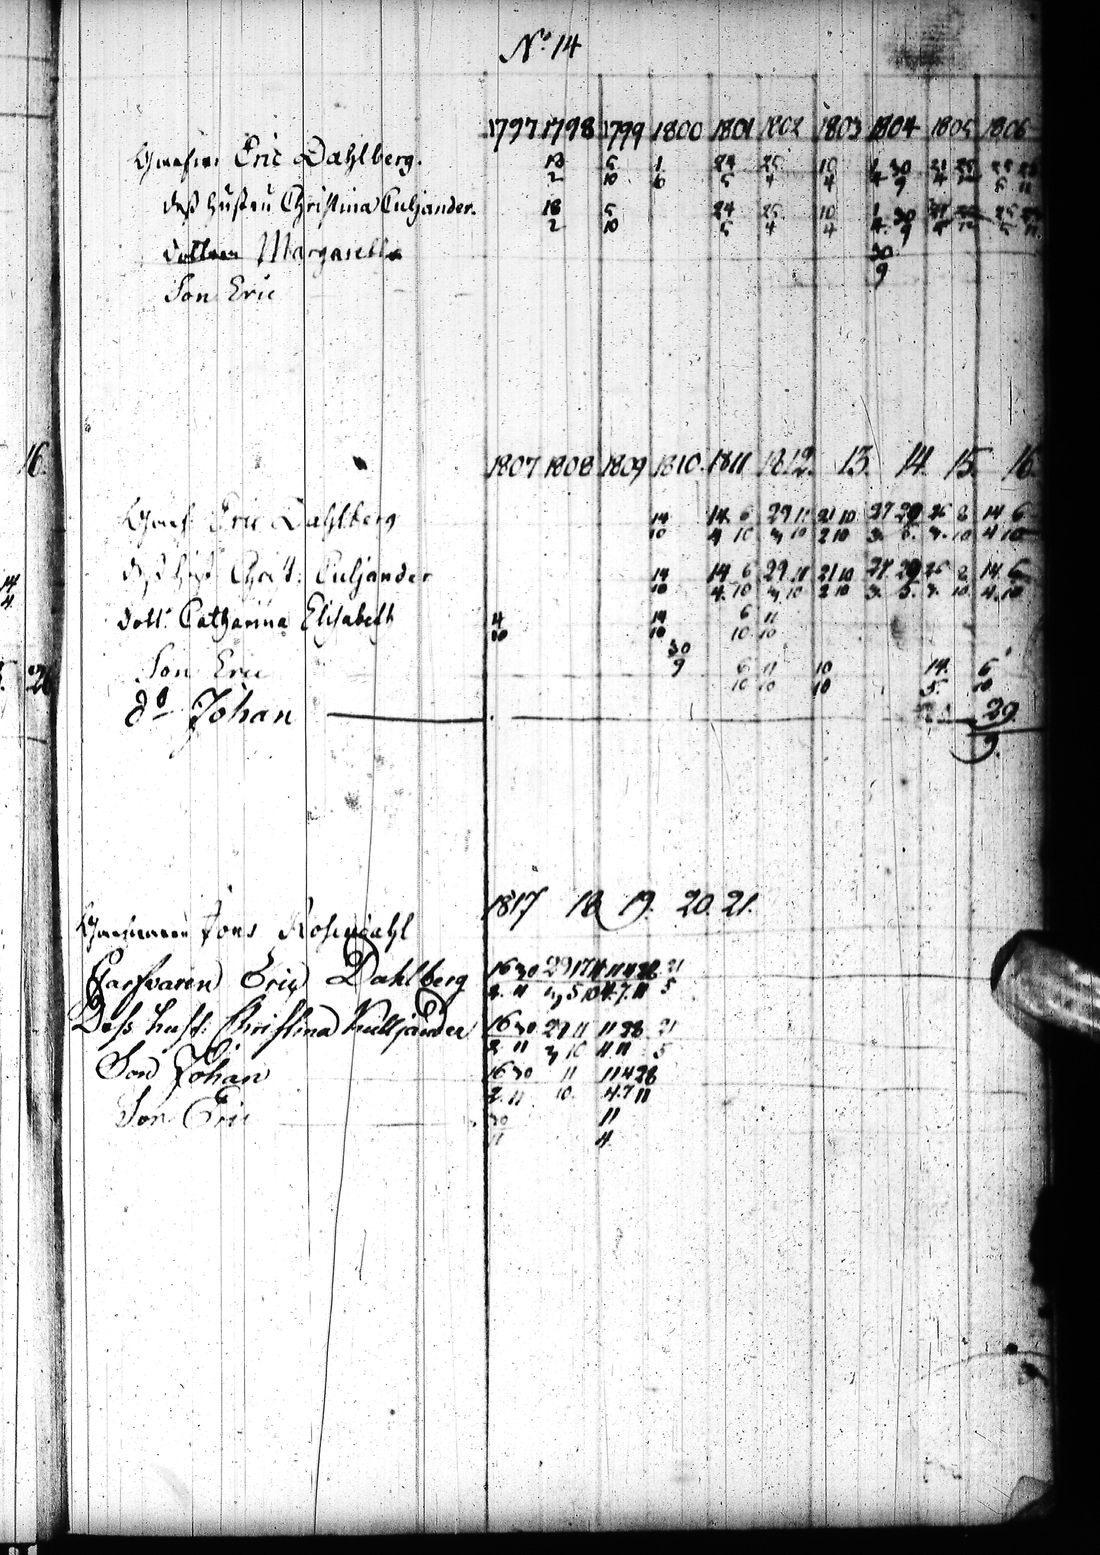 No 14
1797 1798 1799 1800 1801 1802 1803 1804 1805 1806
Eric Dahlberg. 18/2 5/10 1/6 24/5 25/4 10/4 1/4 30/9
Christina Culjander. 18/2 5/10 24/5 25/4 10/4 1/4 30/9
Margareta 30/9
Son Eric
16.
1807 1808 1809 1810. 1811 1812. 13. 14. 15. 16.
Eric Dahlberg 14/10 14/4 6/10 29/3 11/10 21/2 10/10 27/3 29/5 26/3 8/10 14/4 6/10
Christ: Culjander 14/10 14/4 6/10 29/3 11/10 21/2 10/10 27/3 29/5 26/3 8/10 14/4 6/10
14/4
dott: Catharina Elisabeth 4/10 14/10 6/10 11/10
Son Eric 30/9 6/10 11/10 10/10 14/5 6/10
do Johan 29/9
1817 18 19. 20. 21.
Jons Rosendahl
Garfvaren Eric Dahlberg 16/2 30/11 29/3 17/5 4/10 11/4 4/7 28/11 21/5
Dess hust: Christina Kulljander 16/2 30/11 29/3 11/10 11/4 28/11 21/5
Son Johan 16/2 30/11 11/10 11/4 4/7 28/11
Son Eric 30/11 11/4